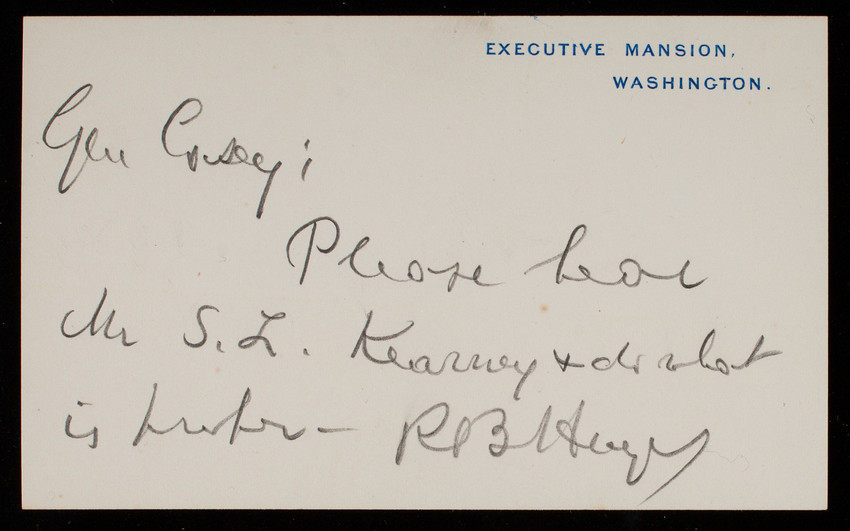 EXECUTIVE MANSION,
WASHINGTON.
Gen Casey;
Please hear
Mr S. L. Kearney + do what
is proper — R B Hayes